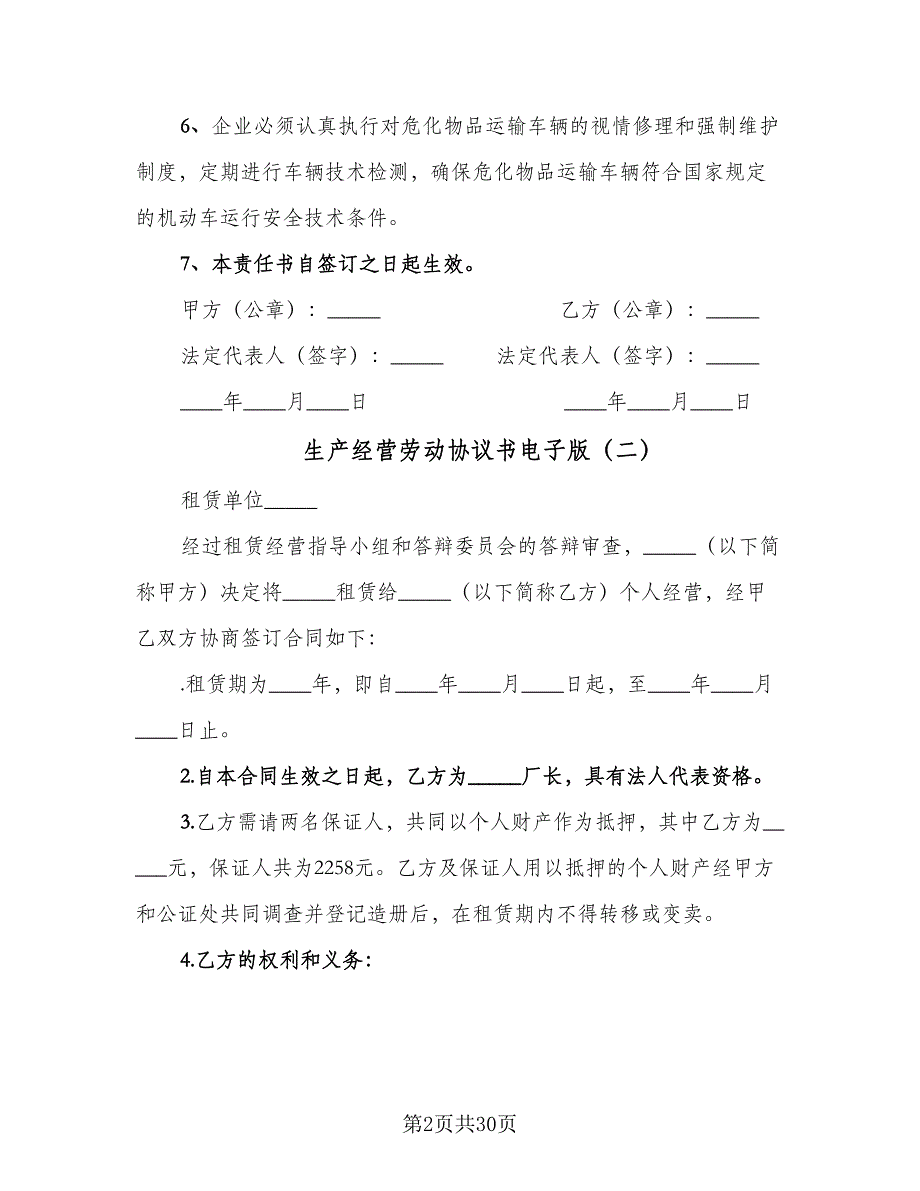 6、企业必须认真执行对危化物品运输车辆的视情修理和强制维护
制度，定期进行车辆技术检测，确保危化物品运输车辆符合国家规定
的机动车运行安全技术条件。
7、本责任书自签订之日起生效。
甲方（公章）：_____ 乙方（公章）：_____
法定代表人（签字）：_____ 法定代表人（签字）：_____
____年____月____日 ____年____月____日
生产经营劳动协议书电子版（二）
租赁单位_____
经过租赁经营指导小组和答辩委员会的答辩审查，_____（以下简
称甲方）决定将_____租赁给_____（以下简称乙方）个人经营，经甲
乙双方协商签订合同如下：
.租赁期为____年，即自____年____月____日起，至____年____月
____日止。
2.自本合同生效之日起，乙方为_____厂长，具有法人代表资格。
3.乙方需请两名保证人，共同以个人财产作为抵押，其中乙方为__
___元，保证人共为2258元。乙方及保证人用以抵押的个人财产经甲方
和公证处共同调查并登记造册后，在租赁期内不得转移或变卖。
4.乙方的权利和义务：
第2页共30页